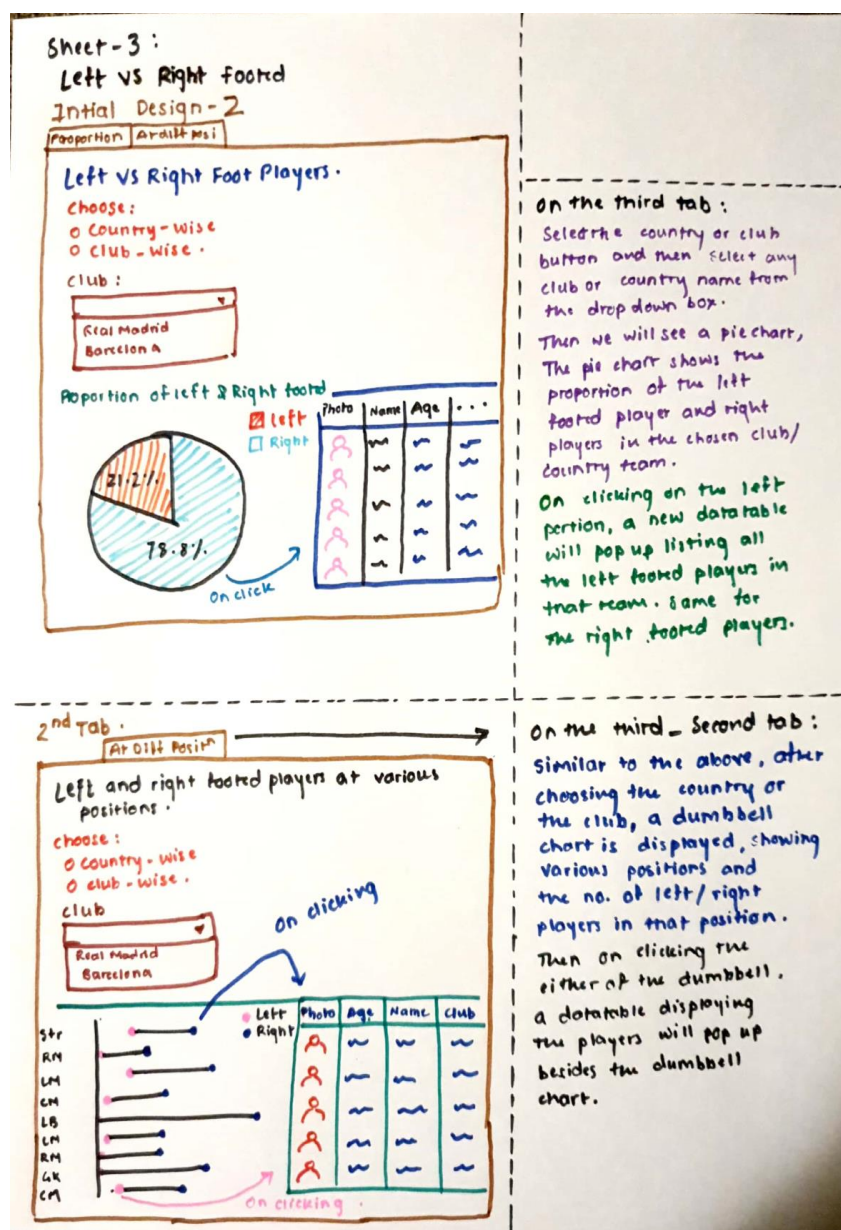 Sheet-3:
Left vs Right footed
Intial Design-2
Proportion At diff Posi
Left vs Right Foot Players.
Choose:
o Country-wise
o Club-wise.
Club:
Real Madrid
Barcelona
Proportion of left & Right footed
Left
Right
21.2%
78.8%
On click
Photo Name Age ...
On the third tab:
Select the country or club
button and then select any
club or country name from
the drop down box.
Then we will see a piechart,
The pie chart shows the
proportion of the left
footed player and right
players in the chosen club/
country team.
On clicking on the left
portion, a new datatable
will pop up listing all
the left footed players in
that team. Same for
the right footed players.
2nd Tab.
At Diff Positn
Left and right footed players at various
positions.
choose:
o Country-wise
o club-wise.
club
Real Madrid
Barcelona
on clicking
Left
Right
Photo Age Name Club
Str
RM
LM
CM
LB
LM
RM
GK
CM
On clicking.
On the third - Second tab:
Similar to the above, after
choosing the country or
the club, a dumbbell
chart is displayed, showing
various positions and
the no. of left/right
players in that position.
Then on clicking the
either of the dumbbell.
a datatable displaying
the players will pop up
besides the dumbbell
chart.